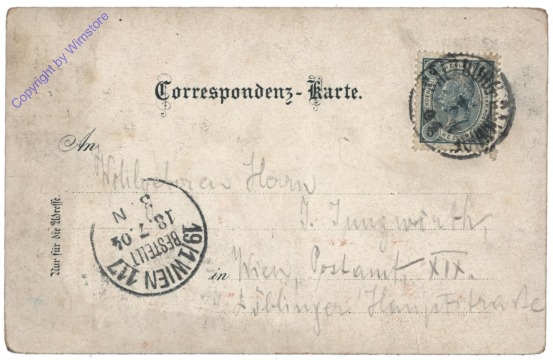 Copyright by Wimstore
Correspondenz-Karte.
An
Wohlgeboren Herrn
J. Jungwirth
in Wien, Postamt XIX.
Döblinger Hauptstraße
Nur für die Adresse.
19/1 WIEN 117
BESTELLT
13.7.04
3. N